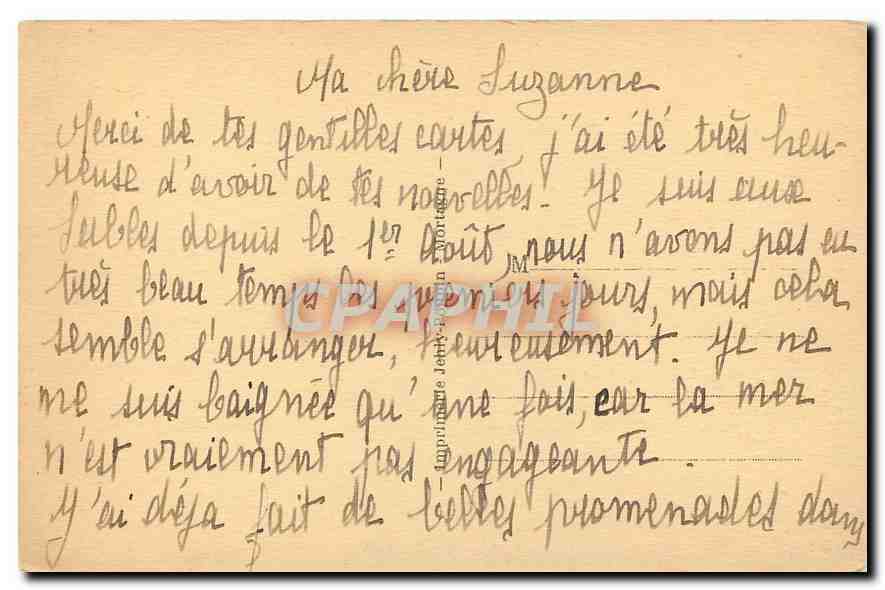 Ma chère Suzanne
Merci de tes gentilles cartes, j'ai été très heu-
reuse d'avoir de tes nouvelles. Je suis aux
Sables depuis le 1er Août, nous n'avons pas eu
très beau temps les premiers jours, mais cela
semble s'arranger, heureusement. Je ne
me suis baignée qu'une fois, car la mer
n'est vraiement pas engageante.
J'ai déja fait de belles promenades dans
M
CPAPHIL
Imprimerie Jehly-Poupin Mortagne